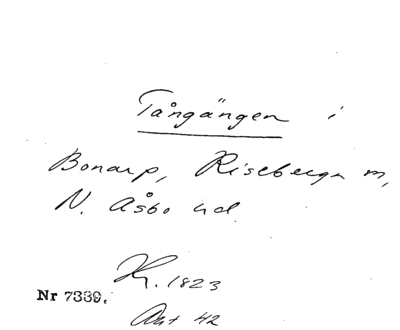 Tångängen i
Bonarp, Riseberga m,
N. Åsbo hd.
Kr. 1823
Nr 7339.
Akt 42